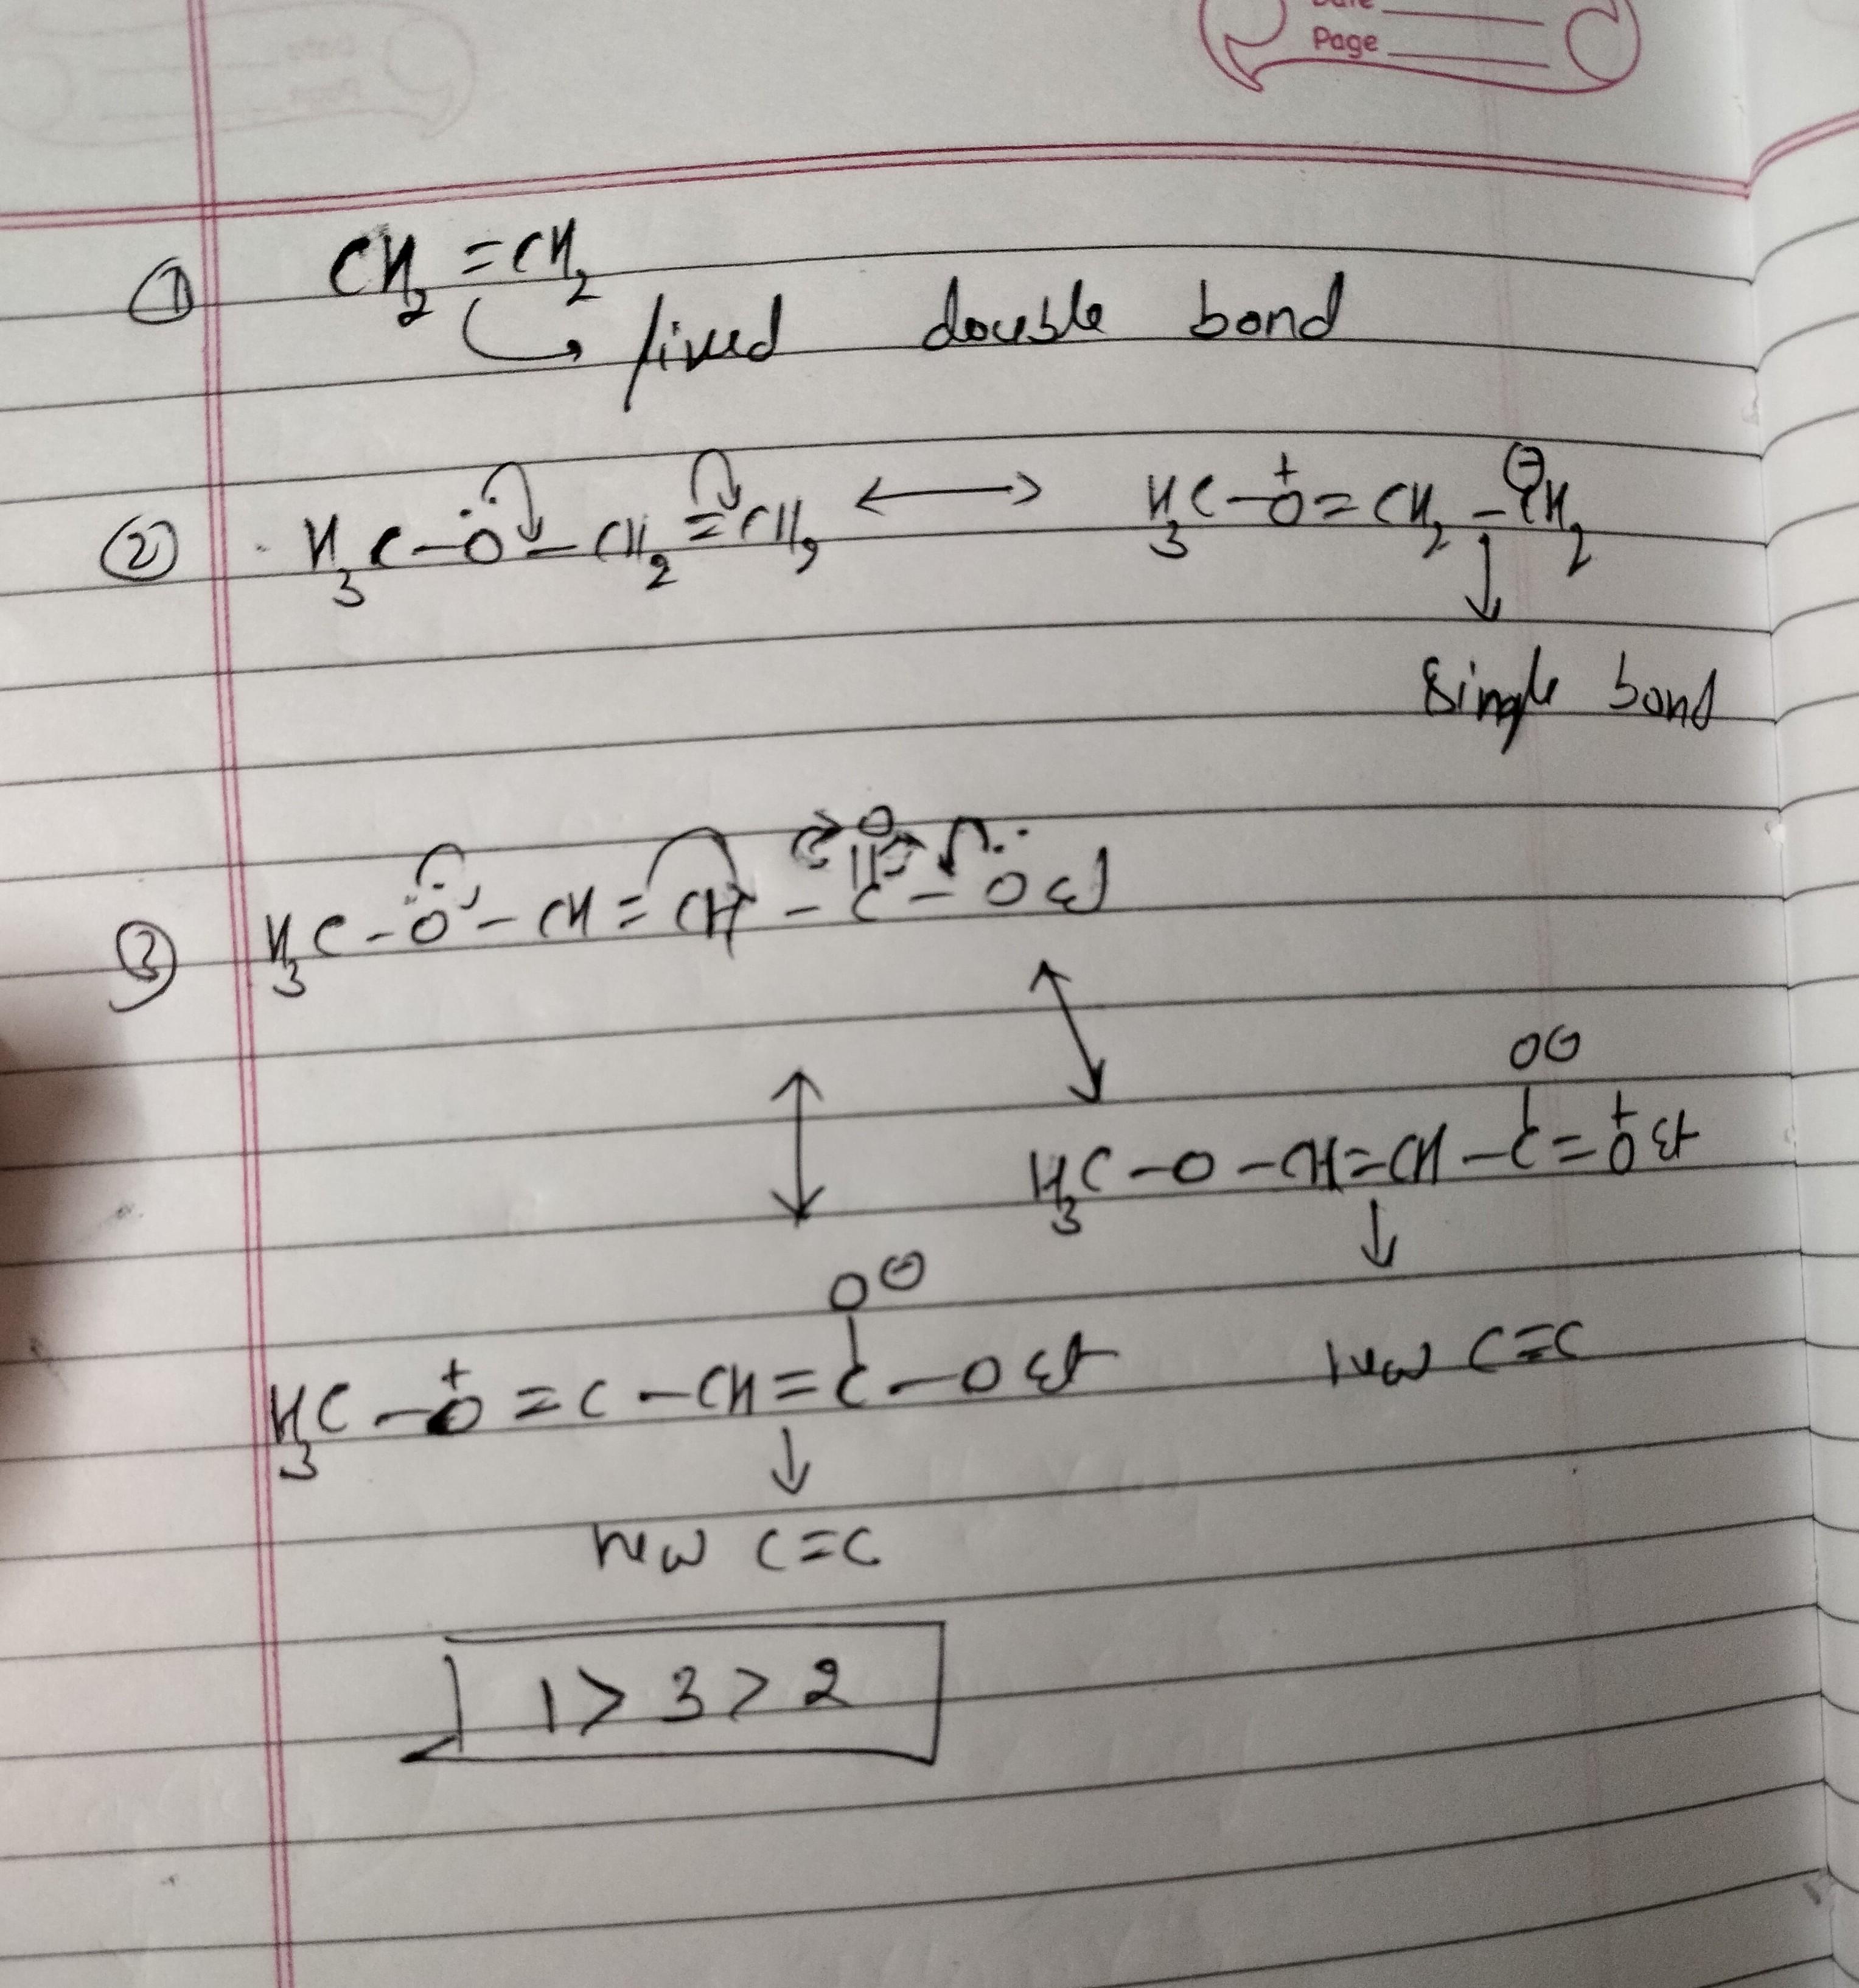 Date
Page
① CH₂=CH₂
fixed double bond
② H₃C-Ö-CH₂=CH₂ ⟷ H₃C-O⁺=CH₂-CH₂⊖
single bond
O
||
③ H₃C-Ö-CH=CH-C-ÖEt
O⊖
|
H₃C-O-CH=CH-C=O⁺Et
O⊖
|
new C=C
H₃C-O⁺=C-CH=C-OEt
new C=C
1>3>2